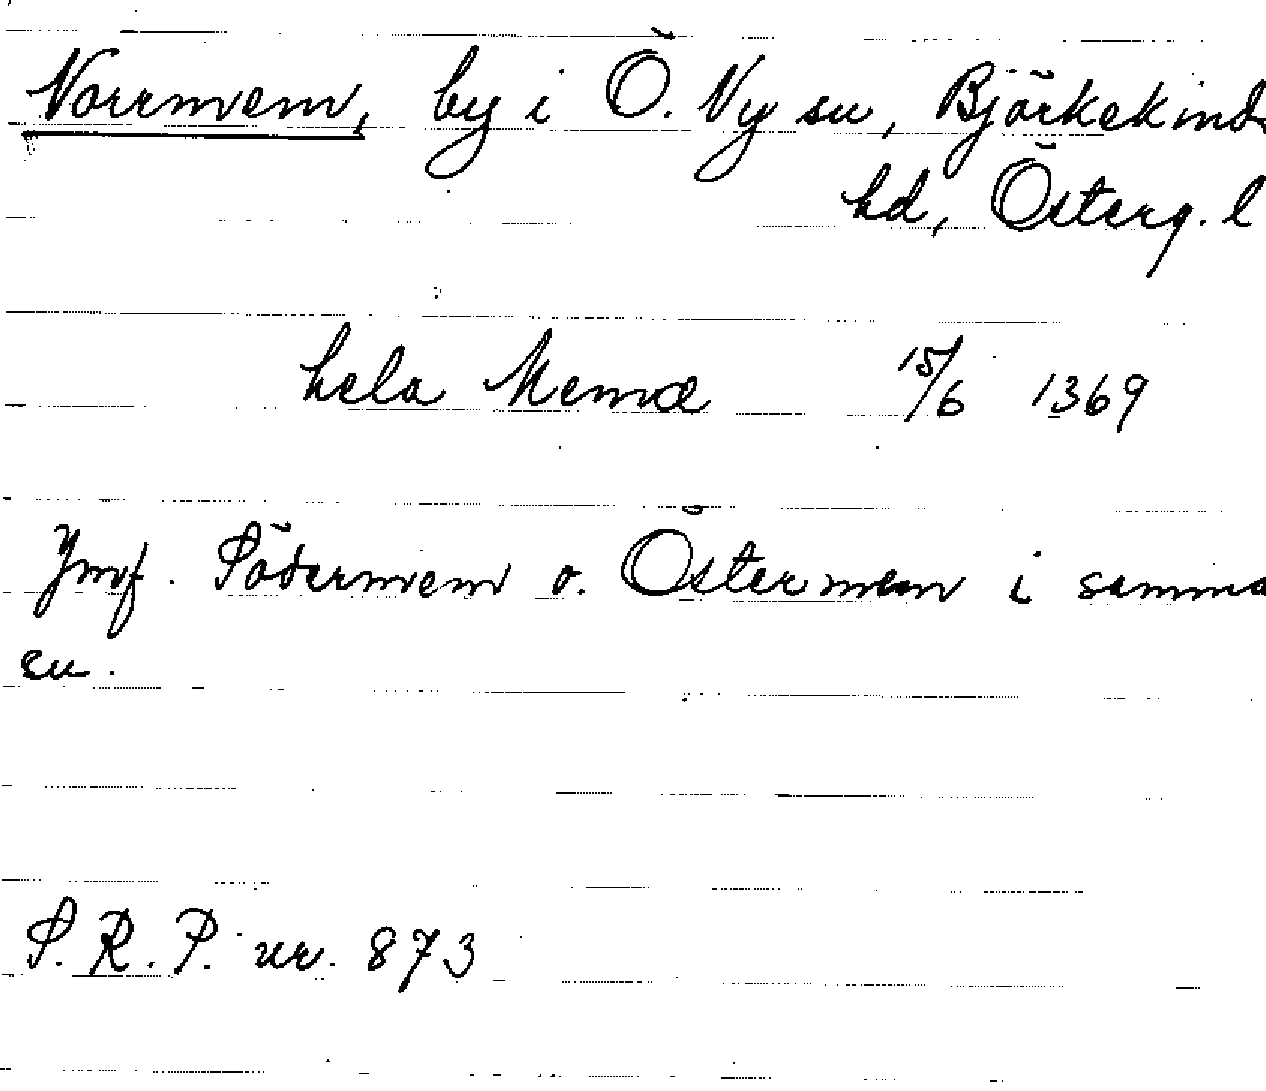 Norrmem, by i Ö. Ny sn, Björkekinds
hd, Österg. l
hela Memæ 15/6 1369
Jmf. Södermem o. Östermem i samma
sn.
S. R. P. nr. 873